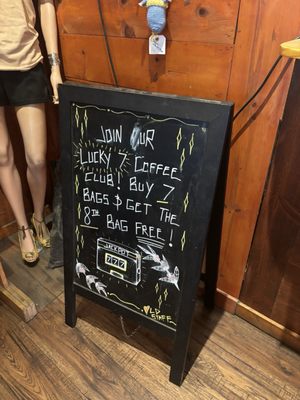 JOIN OUR
LUCKY 7 COFFEE
CLUB! BUY 7
BAGS & GET THE
8th BAG FREE!
JACKPOT
777